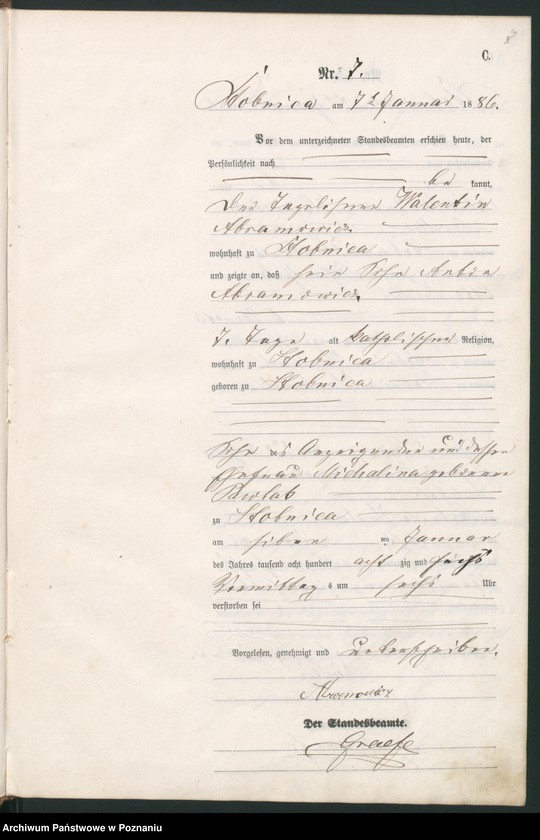 C.
Nr. 7.
Stobnica am 7t Januar 1886.
Vor dem unterzeichneten Standesbeamten erschien heute, der
Persönlichkeit nach
be kannt,
Der Tagelöhner Walentin
Abramowicz
wohnhaft zu Stobnica
und zeigte an, daß sein Sohn Anton
Abramowicz,
7. Tage alt katholischer Religion,
wohnhaft zu Stobnica
geboren zu Stobnica
Sohn des Anzeigenden und dessen
Ehefrau Michalina geborene
zu Stobnica
am sieben ten Januar
des Jahres tausend acht hundert acht zig und sechs
Vormittag s um sechs Uhr
verstorben sei
Vorgelesen, genehmigt und unterschrieben.
Abramowicz
Der Standesbeamte.
Graefe
Archiwum Państwowe w Poznaniu